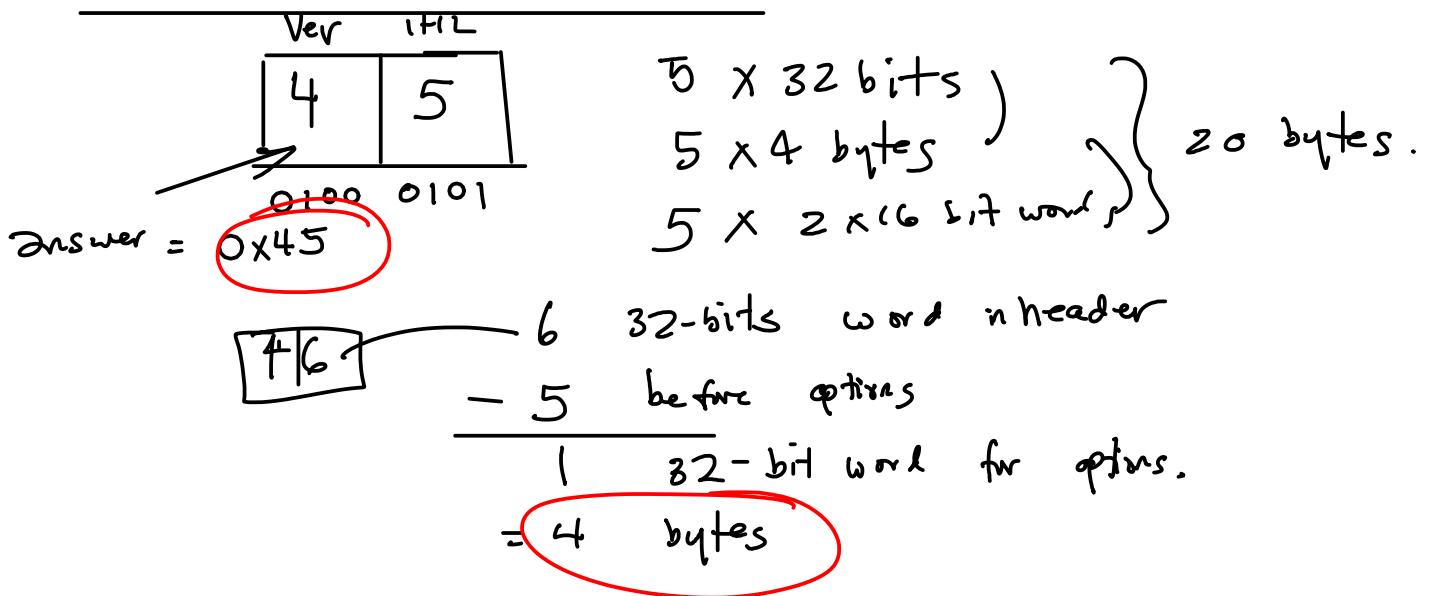 Ver IHL
4 5
0100 0101
answer = 0x45
5 x 32 bits
5 x 4 bytes
5 x 2 x 16 bit words
20 bytes.
4 6
6 32-bits word in header
- 5 before options
1 32-bit word for options.
= 4 bytes